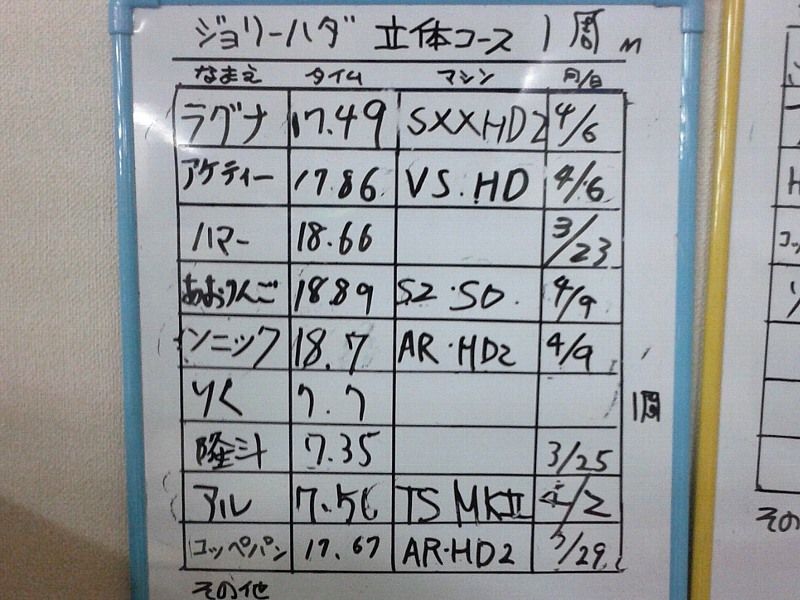 ジョリーハダ 立体コース 1周 m
なまえ タイム マシン 月/日
ラグナ 17.49 SXXHD2 4/6
アケティー 17.86 VS.HD 4/6
ハマー 18.66 3/23
あおりんご 18.89 S2・SD. 4/9
ソニック 18.7 AR・HD2 4/9
りく 7.7
1周
隆斗 7.35 3/25
アル 7.56 TS MKII 4/2
コッペパン 17.67 AR・HD2 3/29
その他
その